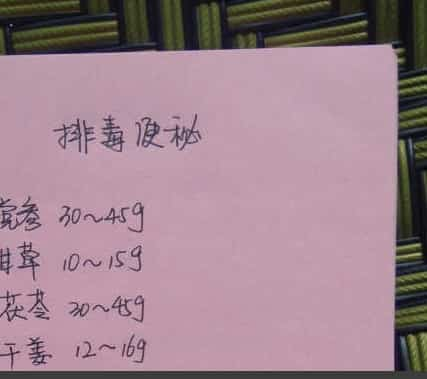 排毒便秘
党参 30~45g
甘草 10~15g
茯苓 30~45g
干姜 12~16g